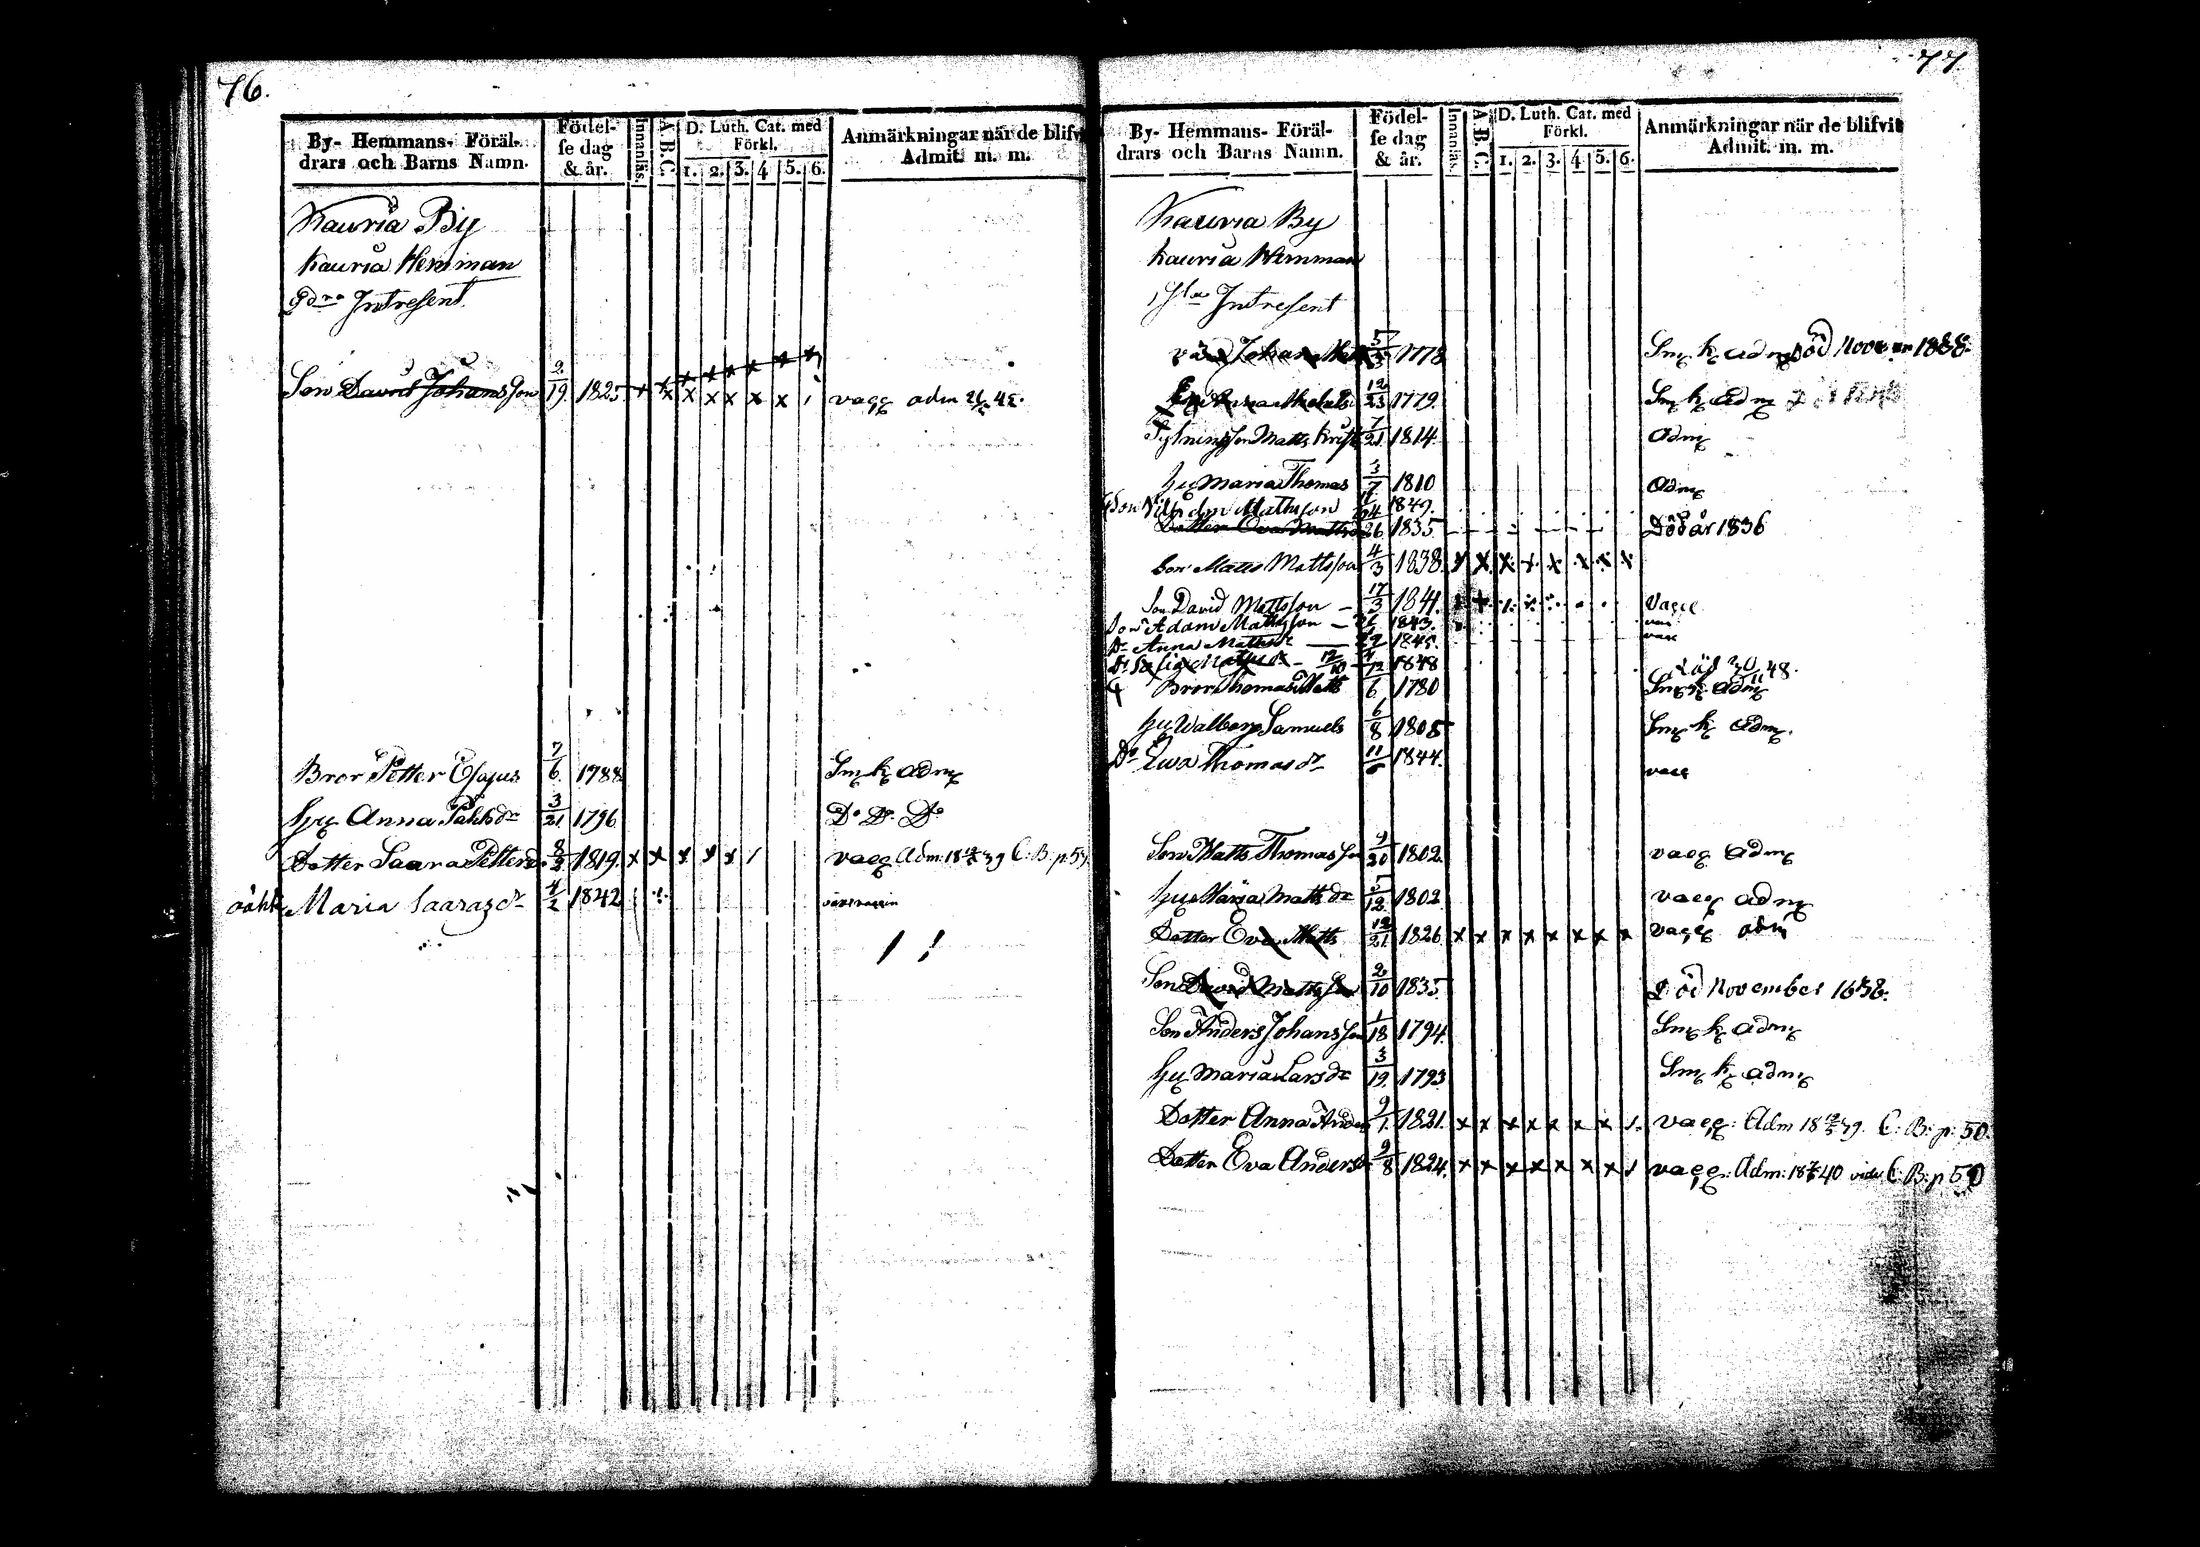 76.
By- Hemmans- Föräl-
drars och Barns Namn.
Födel-
se dag
& år.
Innanläs.
A. B. C.
D. Luth. Cat. med
Förkl.
1. 2. 3. 4 5. 6.
Anmärkningar när de blifvi
Admit. m. m.
Kauria By
Kauria Hemman
2dra Intresent.
Son David Johansson 2/19 1825 x x x x x x x
x x x x x x vacc adm 45.
Bror Petter Esajus 7/6. 1788 Sm k adm
hu Anna Pahls dr 3/21 1796 Do Do Do
Dotter Saara Petters 8/2 1819. x x x x x / vacc Adm: 18 39 C: B: p: 59.
oäkt Maria Saaras dr 4/2 1842
77.
By- Hemmans- Föräl-
drars och Barns Namn.
Födel-
se dag
& år.
Innanläs.
A. B. C.
D. Luth. Cat. med
Förkl.
1. 2. 3. 4 5. 6.
Anmärkningar när de blifvit
Admit. m. m.
Kauria By
Kauria Hemman
1sta Intresent
Johan 1778 Sm k adm Död
12/23 1779. Sm k adm
Sytningsson Matts 7/21 1814. adm
hu Maria Thomas 3/7 1810 adm
Son Vilhelm Mattsson 1849.
Dotter Eva Matts 26 1835 Död år 1836
Son Matts Mattsson 4/3 1838. x x x x x x x x
Son David Mattsson – 17/3 1841. Vacc
Son Adam Mattsson – 1843. vac
Dr Anna Matts dr — 1845. vacc
1848 Död 30/11 48.
Bror Thomas Matts 6 1780 Sm k adm
hu Walborg Samuels 6/8 1805 Sm k adm.
Dr Ewa Thomas dr 11 1844. vacc
Son Matts Thomasson 20 1802. vacc adm
hu Maria Matts dr 5/12 1802. vacc adm
Dotter Eva Matts 12/21 1826 x x x x x x x x vacc adm
Son David Mattsson 2/10 1835 Död November 1838.
Son Anders Johansson 1/18 1794. Sm k adm
hu Maria Lars dr 3/19. 1793 Sm k adm
Dotter Anna Anders 9/1. 1821. x x x x x x x 1. vacc: Adm 18 39. C: B: p: 50.
Dotter Eva Anders 9/8 1824. x x x x x x x 1 vacc: Adm: 18 40 vide C: B: p 50